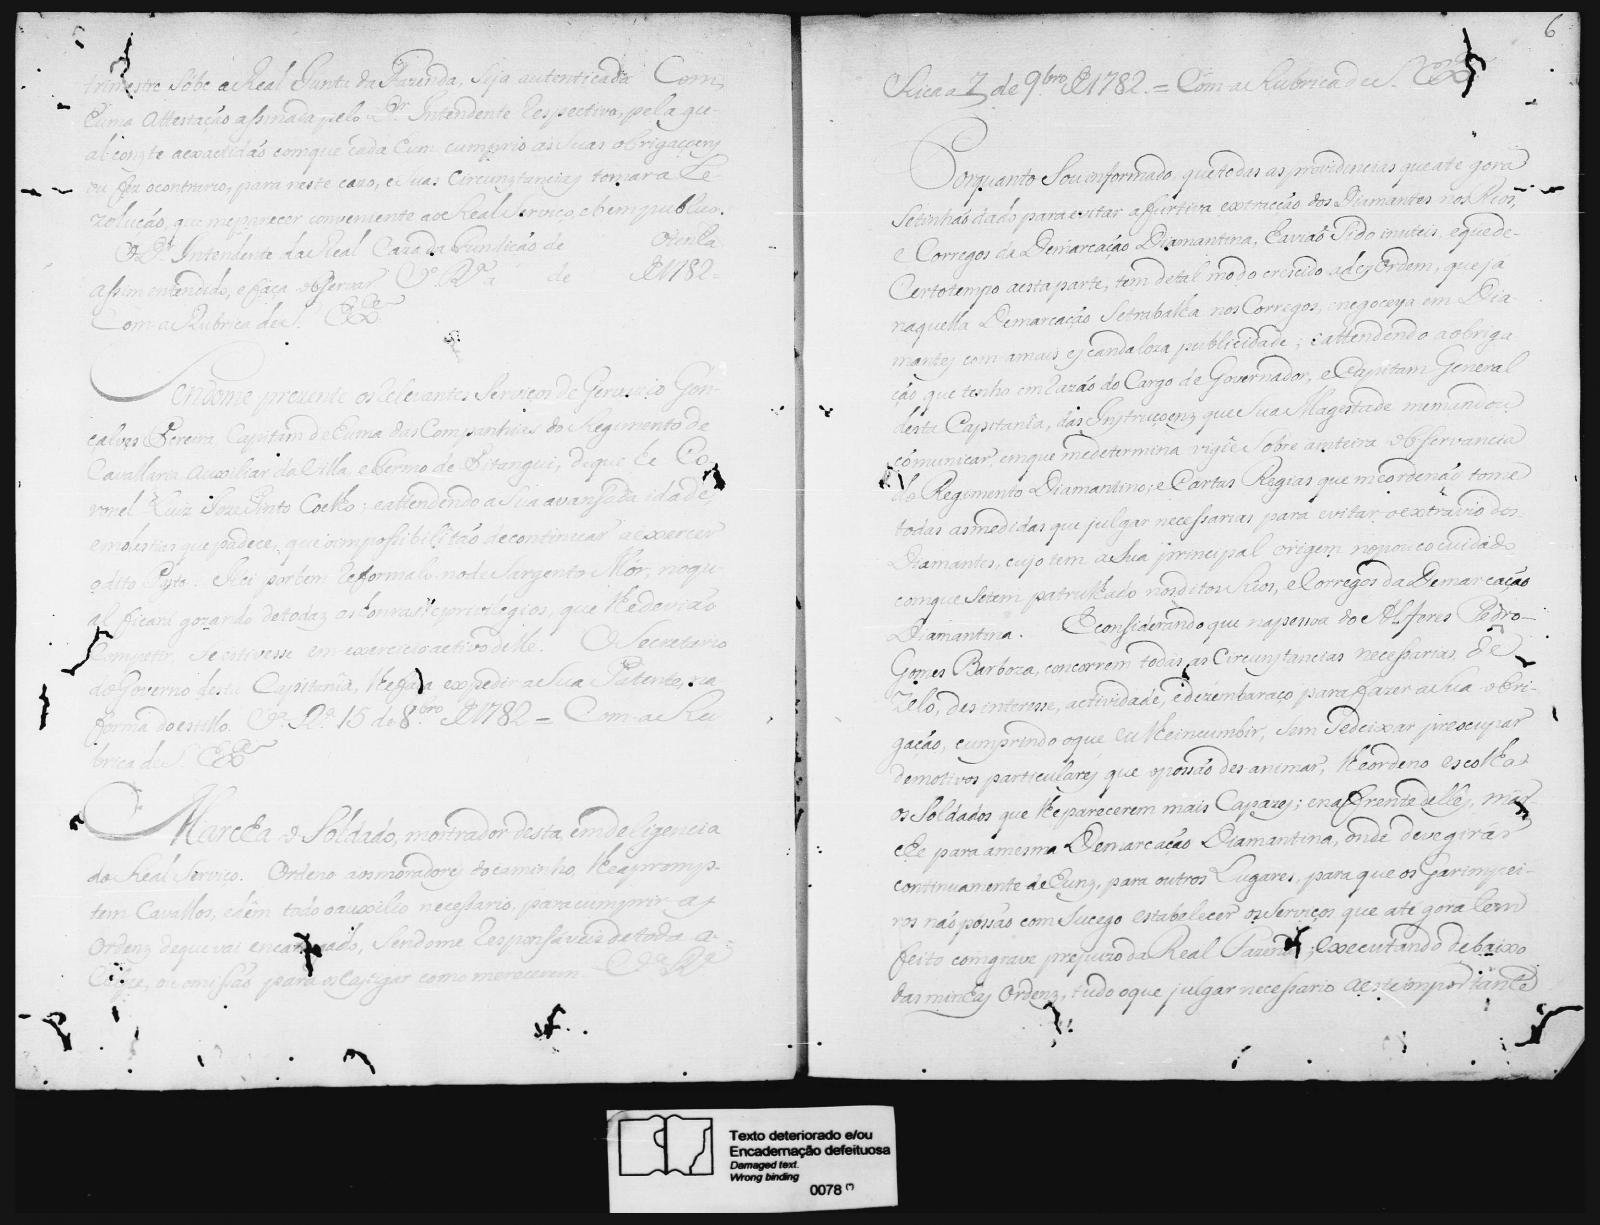 trimestre sobe a Real Junta da Fazenda, seja autenticada Com
huma Attestação assinada pelo Dr. Intendente respectivo, pela qu-
al conste a exactidão com que cada hum cumprio as suas obrigaçoens
ou fez o contrario, para neste cazo, e suas Circunstancias tomar a Re-
zolução, que me parecer conveniente ao Real Serviço, e bem publico.
O Dr. Intendente da Real Caza da Fundição de o tenha
assim entendido, e faça observar Va. Ra. a de de 1782=
Com a Rubrica de S. Exa.
Sendome prezente os relevantes Serviços de Gervazio Gon-
çalves Pereira Capitam de huma das Companhias do Regimento de
Cavallaria Auxiliar da Villa, e Termo de Pitangui, de que he Co-
ronel Luiz Joze Pinto Coelho; e attendendo a sua avansada idade,
e molestias que padece, que o impossibilitão de continuar a exercer
o dito Posto. Hei por bem reformalo no de Sargento Mór, no qu-
al ficará gozando de todas as honras, e privilegios, que lhe devião
Competir, se estivesse em exercicio activo delle. O Secretario
do Governo desta Capitania, lhe faça expedir a sua Patente, na
forma do estillo. Va. Ra. 15 de 8bro. de 1782 = Com a Ru-
brica de S. Exa.
Marcha o Soldado, mostrador desta, em deligencia
do Real Serviço. Ordeno aos moradores do caminho, lhe apromp-
tem Cavallos, e dem todo o auxilio necessario, para cumprir as
Ordens de que vai encarregado, sendome responsaveis de toda a
omissão para os castigar como merecerem. Va. Ra.
6
Rica a 7 de 9bro. de 1782. = Com a Rubrica de S. Exa.
Porquanto Sou informado, que todas as providencias que ate gora
se tinhão dado para evitar a furtiva extracção dos Diamantes nos Rios,
e Corregos da Demarcação Diamantina, havião sido inuteis, e que de-
Certo tempo a esta parte, tem de tal modo crescido a dezordem, que já
naquella Demarcação se trabalha nos Corregos, e negoceya em Dia-
mantes com a mais escandaloza publicidade; e attendendo a obriga-
ção que tenho em razão do Cargo de Governador, e Capitam General
desta Capitania, das Instruçoens que Sua Magestade me mandou
comunicar, em que me determina vigie sobre a inteira observancia
do Regimento Diamantino; e Cartas Regias que me ordenão tome
todas as medidas que julgar necessarias para evitar o extravio dos
Diamantes, cujo tem a sua principal origem no pouco cuidado
com que se tem patrulhado nos ditos Rios, e Corregos da Demarcação
Diamantina. E considerando que na pessoa do Alferes Pedro
Gomes Barboza, concorrem todas as Circunstancias necessarias, de
zelo, desinteresse, actividade, e dezembaraço para fazer a sua obri-
gação, cumprindo o que eu lhe incumbir, sem se deixar preocupar
de motivos particulares que o possão desanimar, lhe ordeno escolha
os Soldados que lhe parecerem mais Capazes; e na frente delles, mar-
che para a mesma Demarcação Diamantina, onde deve girár
continuamente de huns, para outros Lugares, para que os Garimpei-
ros não possão com sucego estabelecer os serviços que até gora tem
feito com grave prejuizo da Real Fazenda; executando debaixo
das minhas Ordens, tudo o que julgar necessario a este importante
Texto deteriorado e/ou
Encadernação defeituosa
Damaged text.
Wrong binding
0078